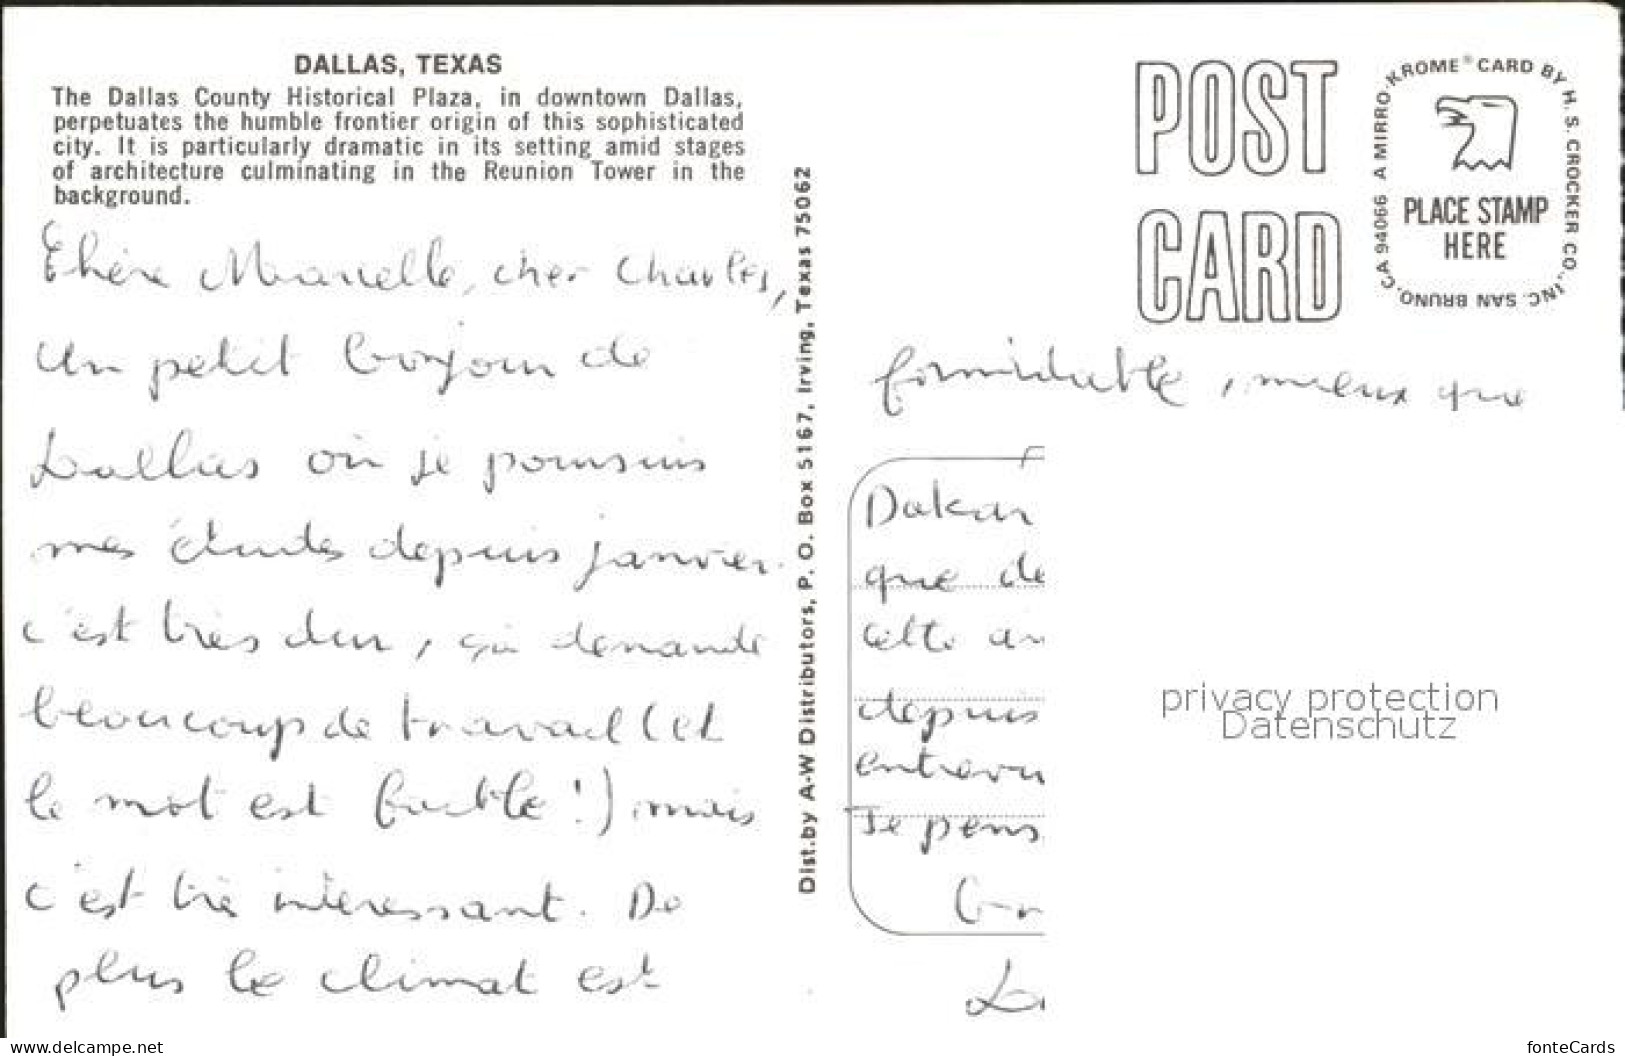 DALLAS, TEXAS
The Dallas County Historical Plaza, in downtown Dallas,
perpetuates the humble frontier origin of this sophisticated
city. It is particularly dramatic in its setting amid stages
of architecture culminating in the Reunion Tower in the
background.
Chère Marcelle, cher Charles,
Un petit bonjour de
Dallas où je poursuis
mes études depuis janvier.
c'est très dur, ça demande
beaucoup de travail (et
le mot est faible!) mais
c'est très interessant. De
plus le climat est
Dist.by A-W Distributors, P. O. Box 5167, Irving, Texas 75062
POST
CARD
A MIRRO-KROME® CARD BY H. S. CROCKER CO., INC. SAN BRUNO, CA 94066
PLACE STAMP
HERE
formidable, mieux que
Dakar
que de
cette an
depuis
entrevu
Je pens
privacy protection
Datenschutz
www.delcampe.net
fonteCards